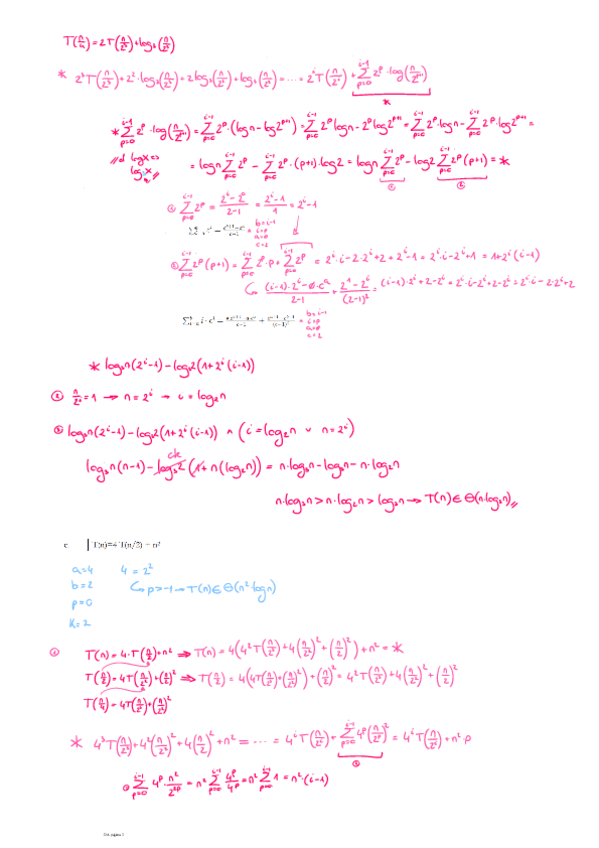 T(n/4) = 2T(n/2³) + log₂(n/2²)
* 2³T(n/2³) + 2²·log₂(n/2²) + 2log₂(n/2) + log₂(n) = ... = 2ⁱT(n/2ⁱ) + Σ_{p=0}^{i-1} 2^p · log(n/2^{p+1})
*
* Σ_{p=0}^{i-1} 2^p · log(n/2^{p+1}) = Σ_{p=0}^{i-1} 2^p · (log n - log 2^{p+1}) = Σ_{p=0}^{i-1} 2^p log n - 2^p log 2^{p+1} = Σ_{p=0}^{i-1} 2^p · log n - Σ_{p=0}^{i-1} 2^p · log 2^{p+1} =
= log n Σ_{p=0}^{i-1} 2^p - Σ_{p=0}^{i-1} 2^p · (p+1) log 2 = log n Σ_{p=0}^{i-1} 2^p - log 2 Σ_{p=0}^{i-1} 2^p (p+1) = *
Σ_{p=0}^{i-1} 2^p = (2ⁱ - 2⁰)/(2-1) = (2ⁱ - 1)/1 = 2ⁱ - 1
b = i-1
i = p
a = 0
c = 2
Σ_{p=0}^{i-1} 2^p (p+1) = Σ_{p=0}^{i-1} 2^p · p + Σ_{p=0}^{i-1} 2^p = 2ⁱ·i - 2·2ⁱ + 2 + 2ⁱ - 1 = 2ⁱ·i - 2ⁱ + 1 = 1 + 2ⁱ(i-1)
((i-1)·2ⁱ - 0·c^a)/(2-1) + (2¹ - 2ⁱ)/(2-1)² = (i-1)·2ⁱ + 2 - 2ⁱ = 2ⁱ·i - 2ⁱ + 2 - 2ⁱ = 2ⁱ·i - 2·2ⁱ + 2
b = i-1
i = p
a = 0
c = 2
* log₂n (2ⁱ - 1) - log₂2 (1 + 2ⁱ (i-1))
② n/2ⁱ = 1 → n = 2ⁱ → i = log₂n
③ log₂n (2ⁱ - 1) - log₂2 (1 + 2ⁱ (i-1)) ∧ (i = log₂n ∨ n = 2ⁱ)
log₂n (n-1) - log₂2 (1 + n (log₂n)) = n·log₂n - log₂n - n·log₂n
n·log₂n > n·log₂n > log₂n → T(n) ∈ Θ(n·log₂n)
T(n)=4 T(n/2) + n²
a = 4 4 = 2²
b = 2 p > -1 → T(n) ∈ Θ(n²·log n)
p = 0
K = 2
① T(n) = 4·T(n/2) + n² ⇒ T(n) = 4(4²T(n/2³) + 4(n/2²)² + (n/2)²) + n² = *
T(n/2) = 4T(n/2²) + (n/2)² ⇒ T(n/2) = 4(4T(n/2³) + (n/2²)²) + (n/2)² = 4²T(n/2³) + 4(n/2²)² + (n/2)²
T(n/4) = 4T(n/2³) + (n/2²)²
* 4³T(n/2³) + 4²(n/2²)² + 4(n/2)² + n² = ... = 4ⁱT(n/2ⁱ) + Σ_{p=0}^{i-1} 4^p (n/2^p)² = 4ⁱT(n/2ⁱ) + n²·p
Σ_{p=0}^{i-1} 4^p · n²/2^{2p} = n² Σ_{p=0}^{i-1} 4^p/4^p = n² Σ_{p=0}^{i-1} 1 = n²·(i-1)